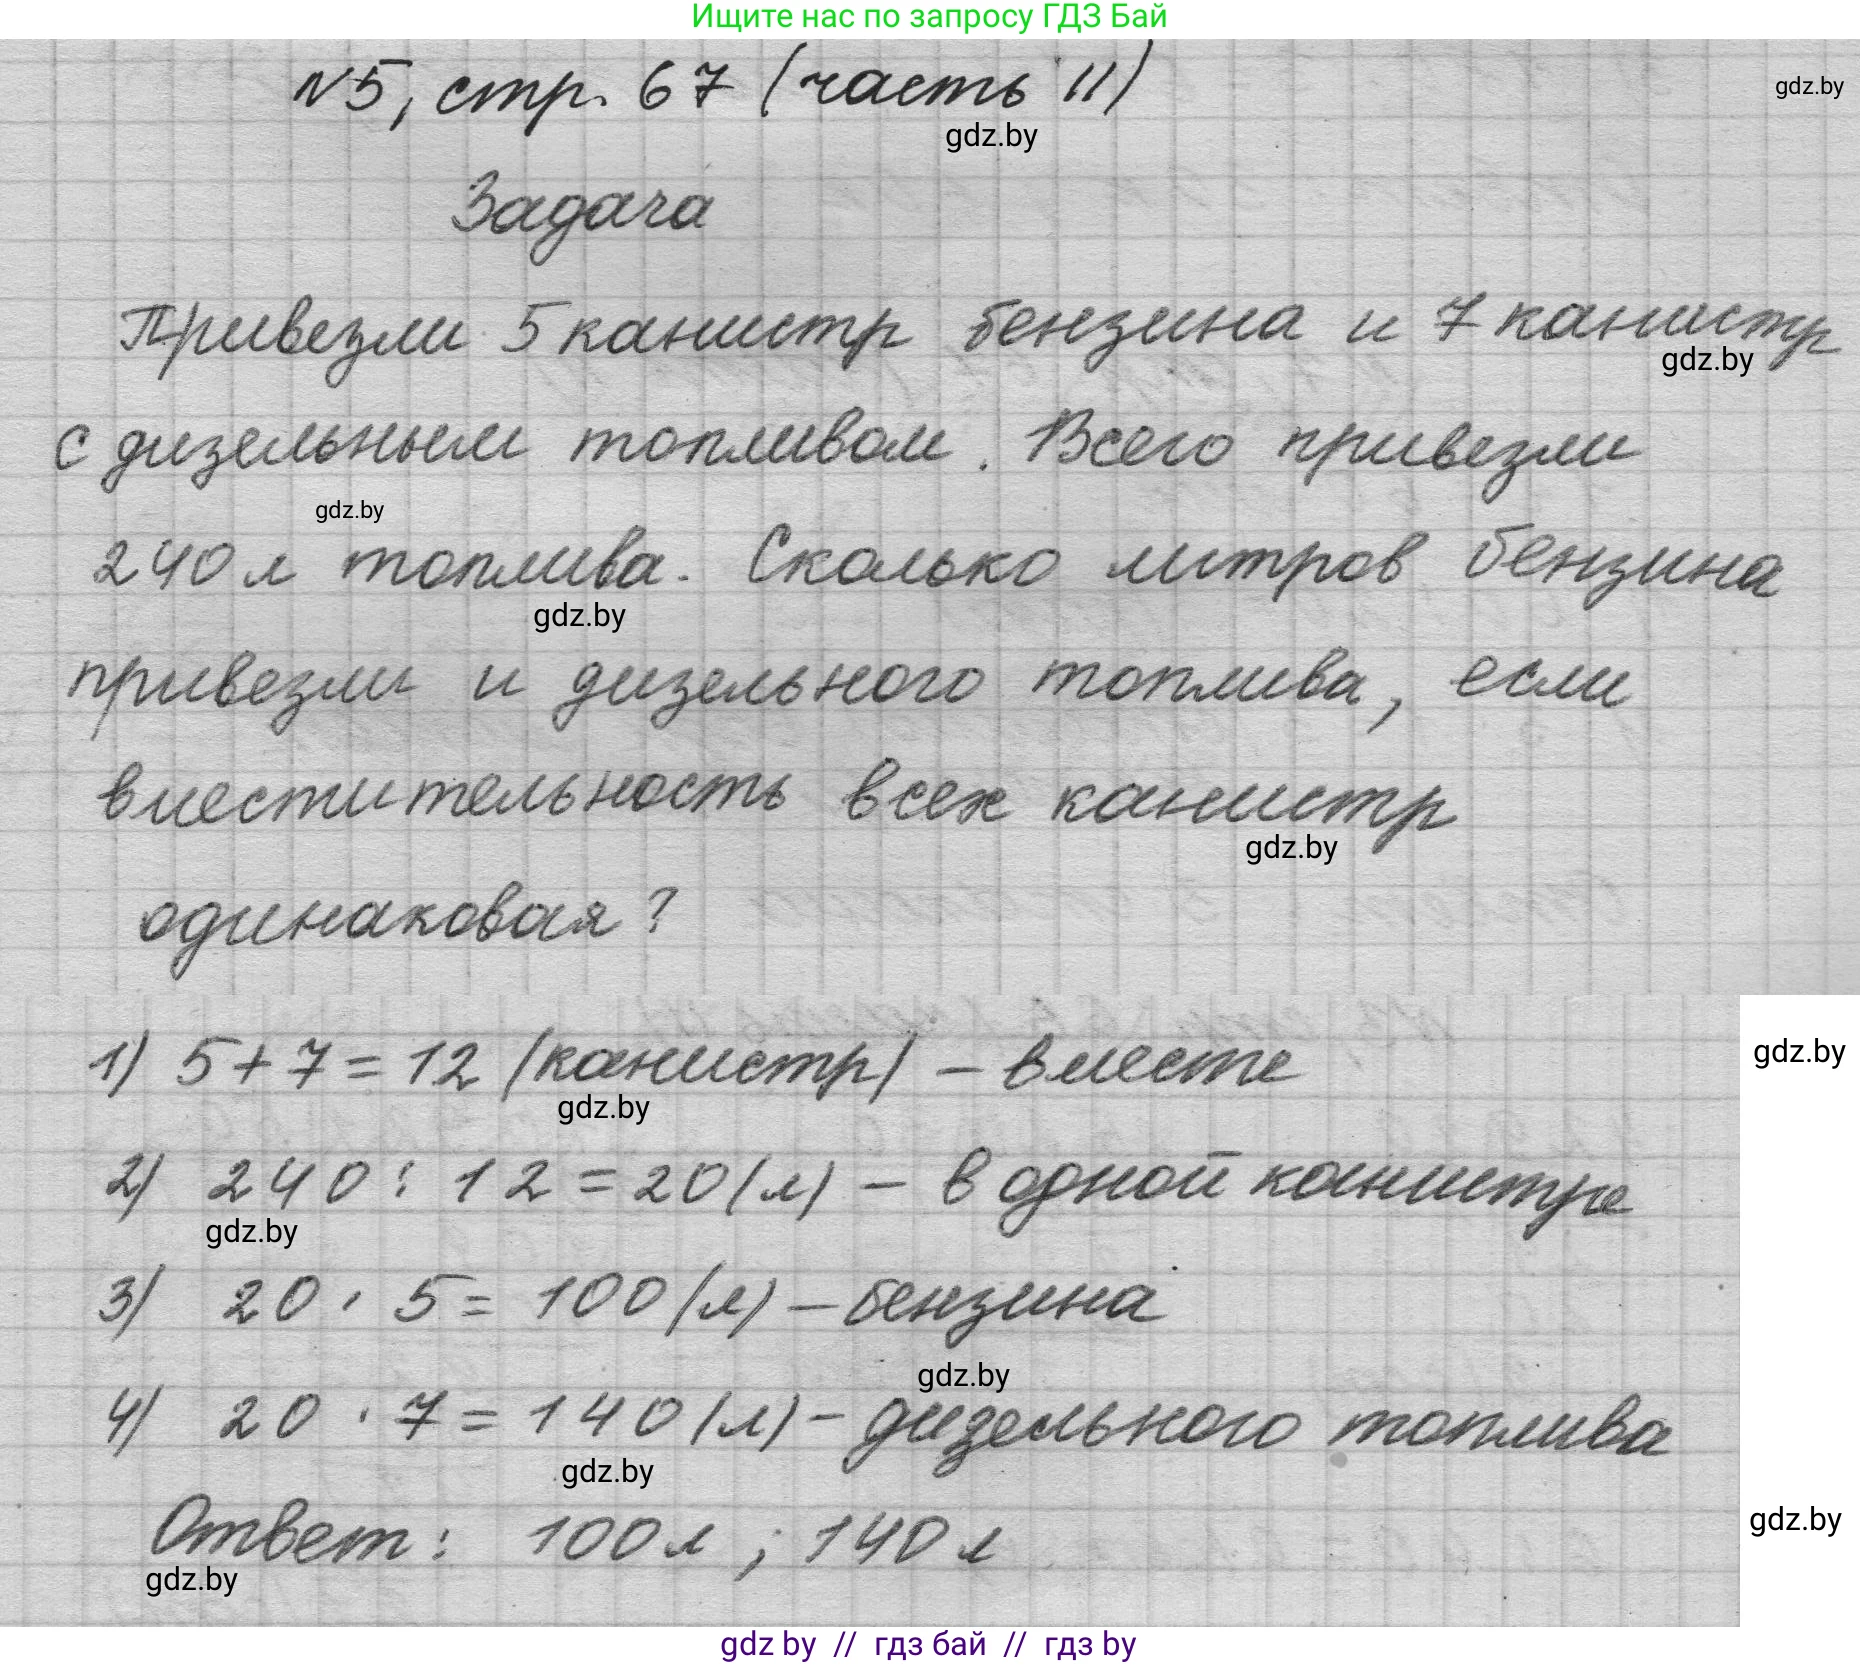 Ищите нас по запросу ГДЗ Бай
№5, стр. 67 (часть II)
gdz.by
gdz.by
Задача
Привезли 5 канистр бензина и 7 канистр
gdz.by
с дизельным топливом. Всего привезли
gdz.by
240 л топлива. Сколько литров бензина
gdz.by
привезли и дизельного топлива, если
вместительность всех канистр
gdz.by
одинаковая?
1) 5+7=12 (канистр) – вместе
gdz.by
gdz.by
2) 240 : 12 = 20 (л) – в одной канистре
gdz.by
3) 20 · 5 = 100 (л) – бензина
gdz.by
4) 20 · 7 = 140 (л) – дизельного топлива
gdz.by
Ответ: 100 л ; 140 л
gdz.by
gdz.by
gdz by // гдз бай // гдз by